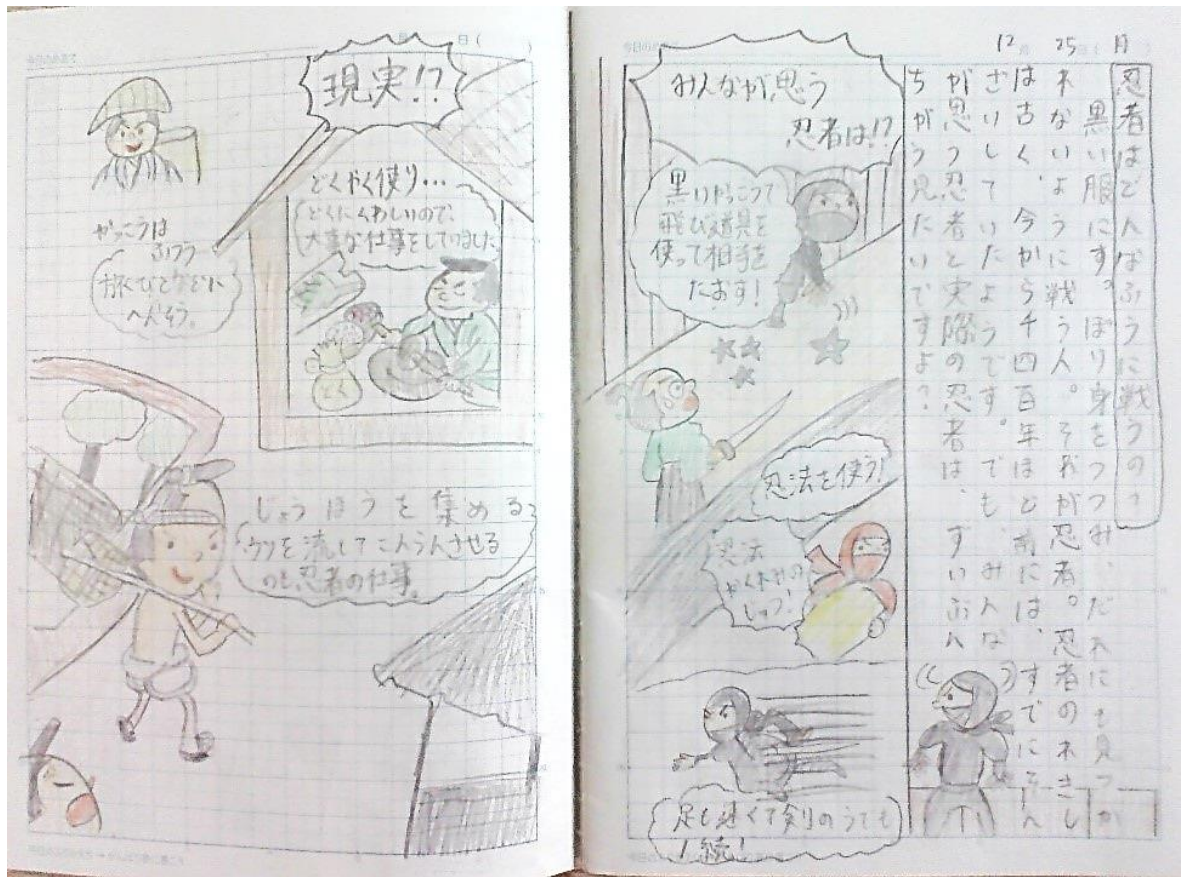 12 25 月
忍者はどんなふうに戦うの?
黒い服にすっぽり身をつつみ、だれにも見つか
れないように戦う人。それが忍者。忍者のれきし
は古く、今から千四百年ほど前には、すでにそん
ざいしていたようです。でもみんな
が思う忍者と実際の忍者は、ずいぶん
ちがう見たいですよ?
みんなが思う
忍者は!?
黒いかっこうで
飛び道具を
使って相手を
たおす!
忍法を使う!
忍法
かくれみの
じゅつ!
足も速くて剣のうでも
一流!
現実!?
どくやく使い…
どくにくわしいので、
大事な仕事をしていました
どく
かっこうは
ふつう
旅びとなどに
へんそう。
じょうほうを集める
ウソを流してこんらんさせる
のも、忍者の仕事。